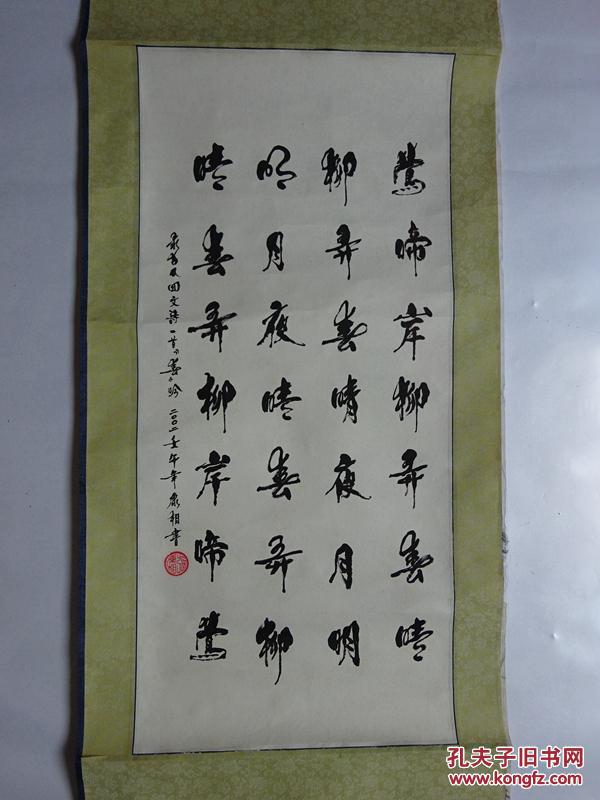 莺啼岸柳弄春晴
柳弄春晴夜月明
明月夜晴春弄柳
晴春弄柳岸啼莺
回文诗一首春吟二〇〇二壬午年
孔夫子旧书网
www.kongfz.com